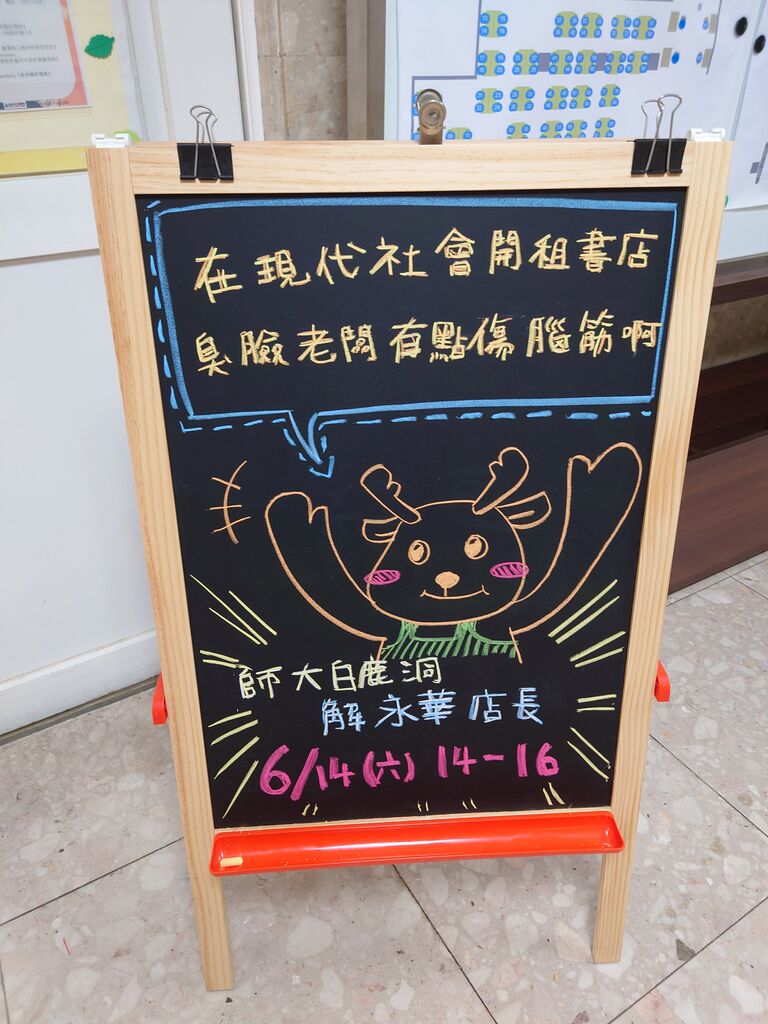 在現代社會開租書店
臭臉老闆有點傷腦筋啊
師大白鹿洞
解永華店長
6/14(六) 14-16